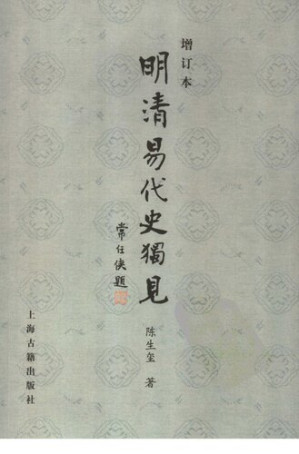 增订本
明清易代史獨見
常任侠題
陈生玺 著
上海古籍出版社